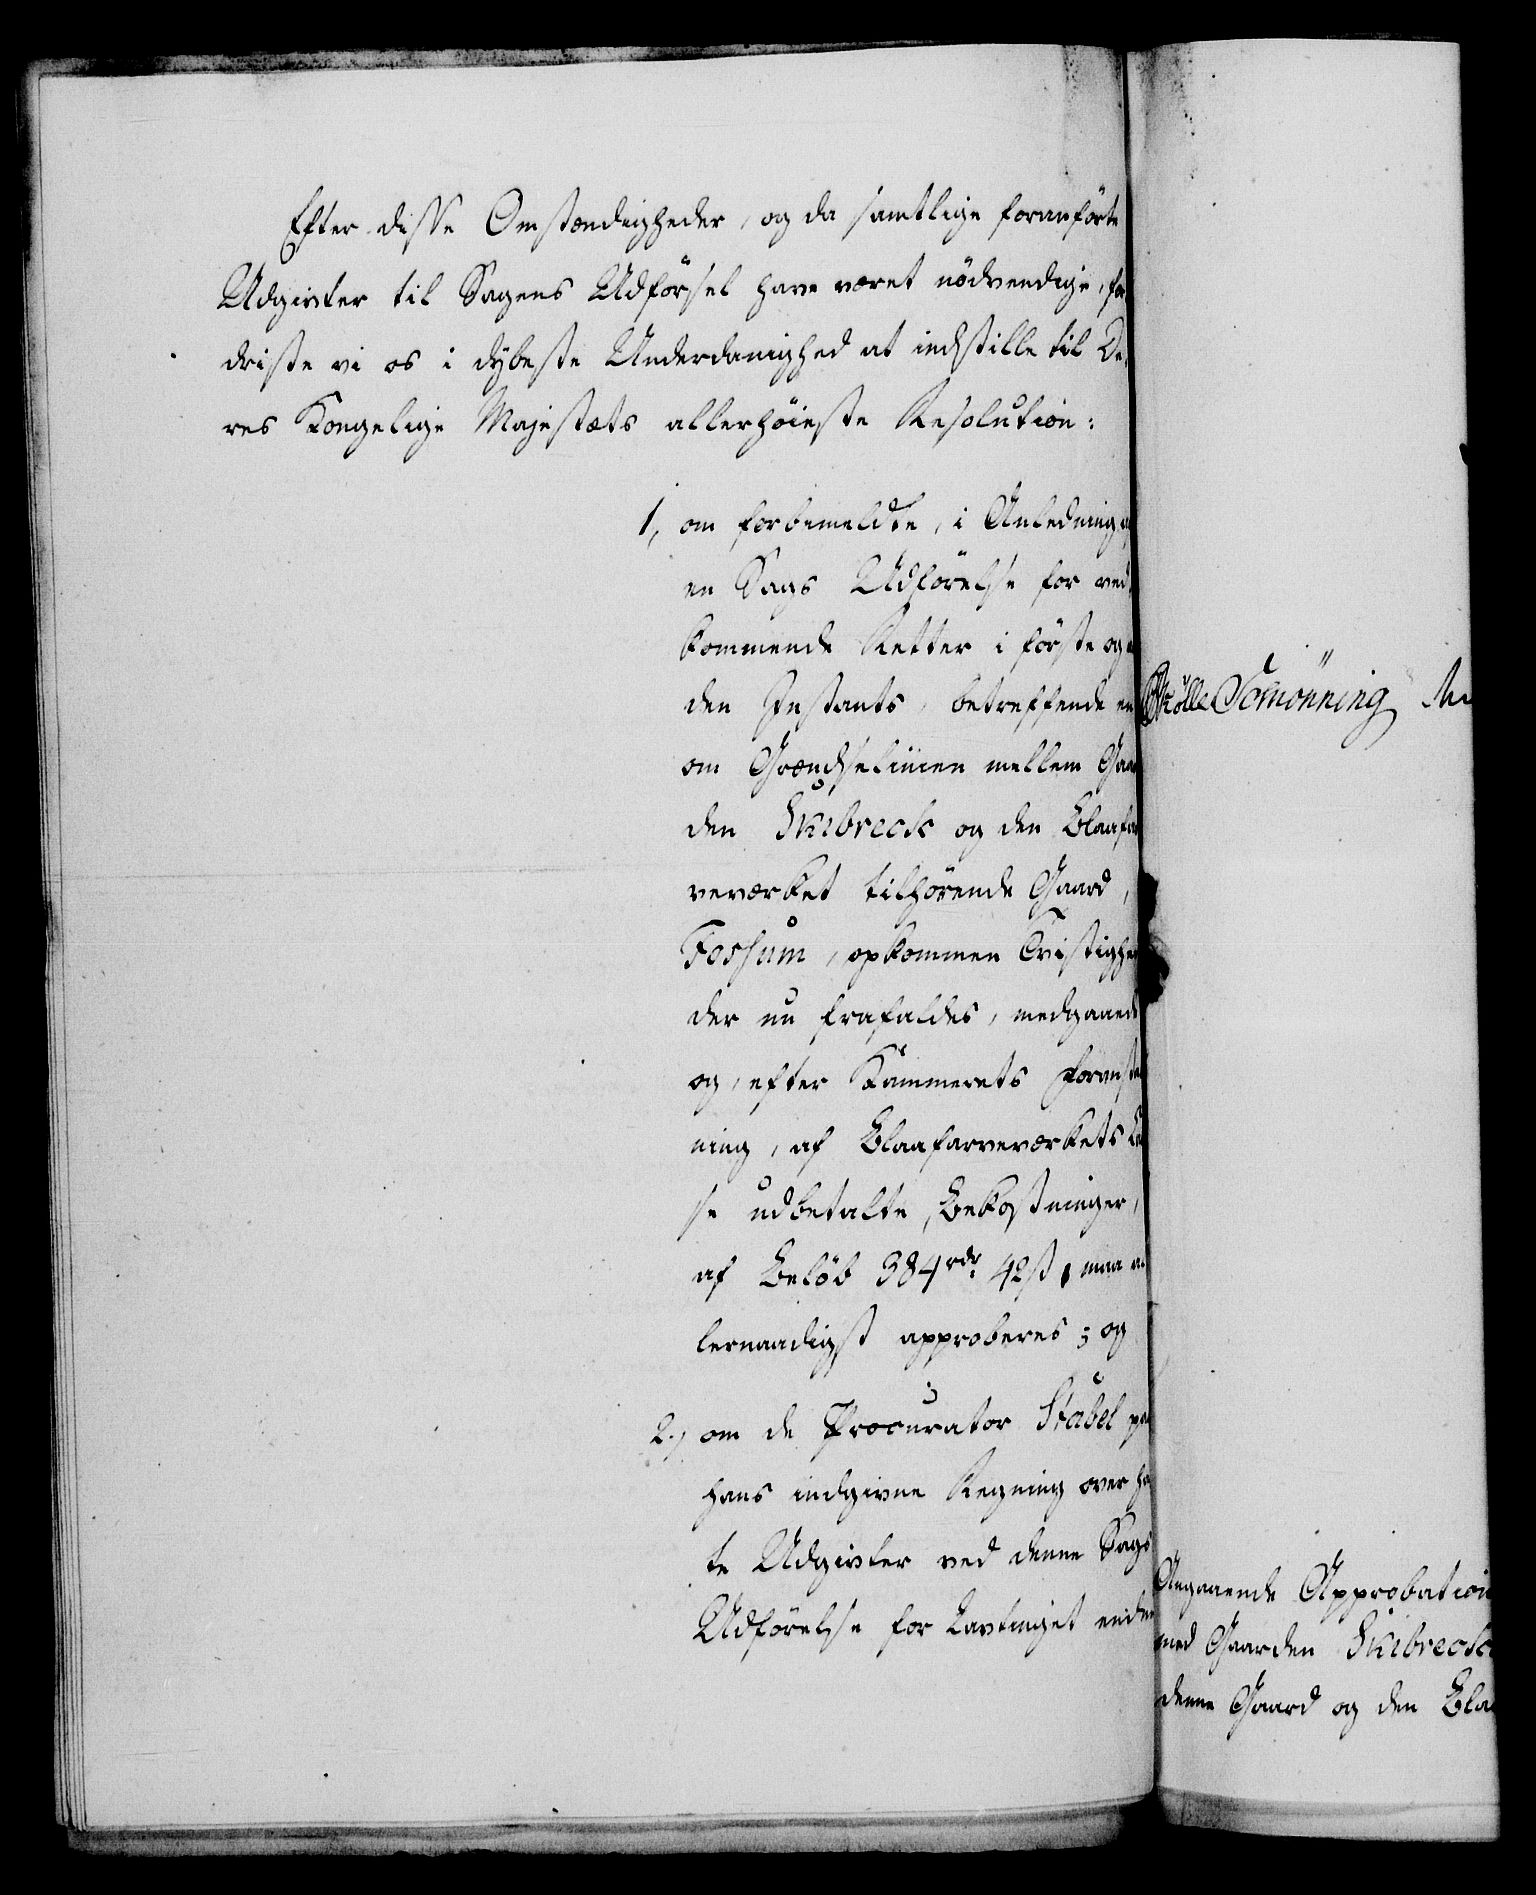 Efter disse Omstændigheder, og da samtlige foranförte
Udgivter til Sagens Udförsel have været nödvendige, for
driste vi os i dybeste Underdanighed at indstille til De,
res Kongelige Majestæts allerhöieste Resolution:
1, om forbemeldte, i Anledning af
en Sags Udförelse for ved,
kommende Retter i förste og
den Instants, betreffende en
om Grændselinien mellem Gaar
den Skibreck og den Blaafar
veværket tilhörende Gaard,
Fossum, opkommen Tvistighed
der nu frafaldes, medgaaede
og, efter Kammerets Foranstalt
ning, af Blaafarveværkets Cas
se udbetalte, Bekostninger,
af Belöb 384 rdr 42 ß, maa al
lernaadigst approberes; og
2., om de Procurator Stabel paa
hans indgivne Regning over haf
te Udgivter ved denne Sags
Udförelse for Lavtinget endnu
Schönning
Angaaende Approbation
med Gaarden Skibreck
denne Gaard og den Blaa